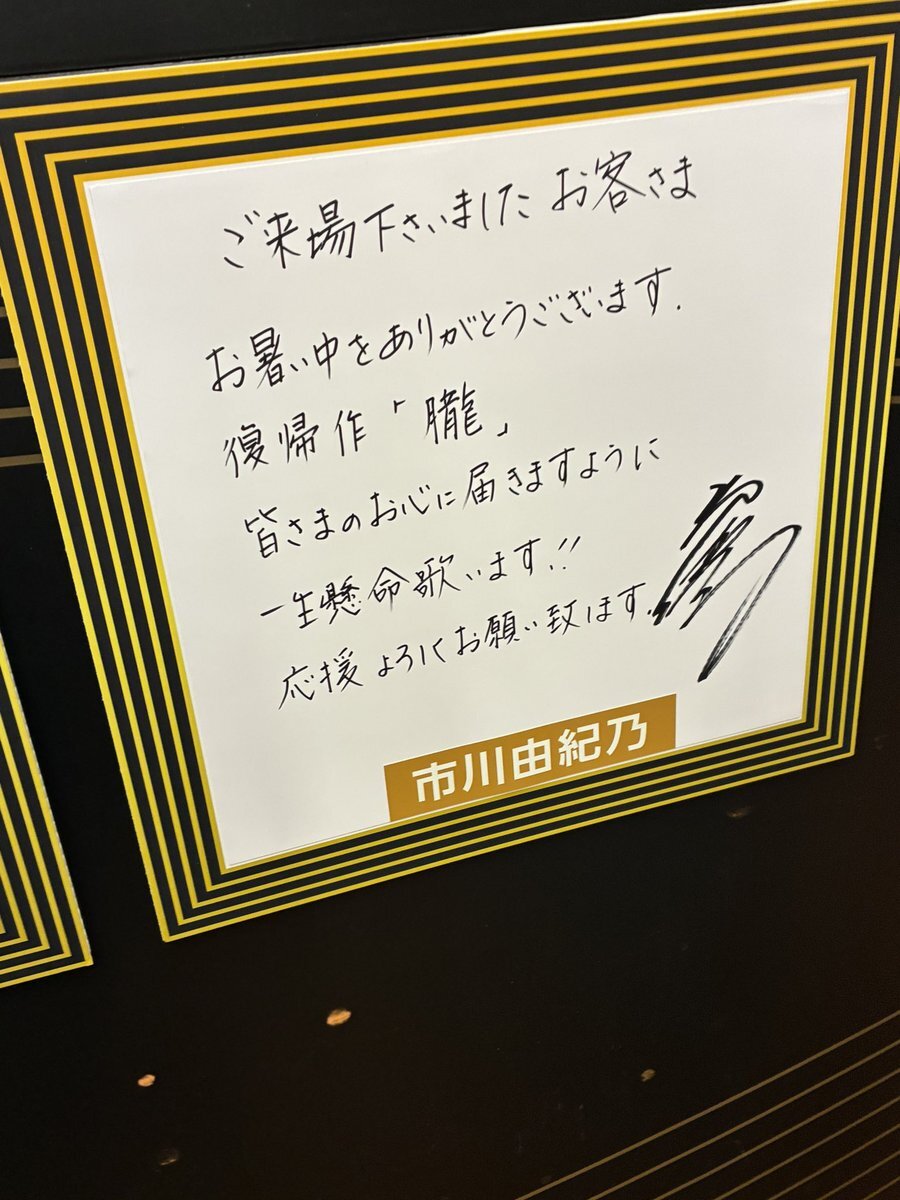 ご来場下さいました お客さま
お暑い中をありがとうございます.
復帰作「朧」
皆さまのお心に届きますように
一生懸命歌います!!
応援よろしくお願い致します.
市川由紀乃